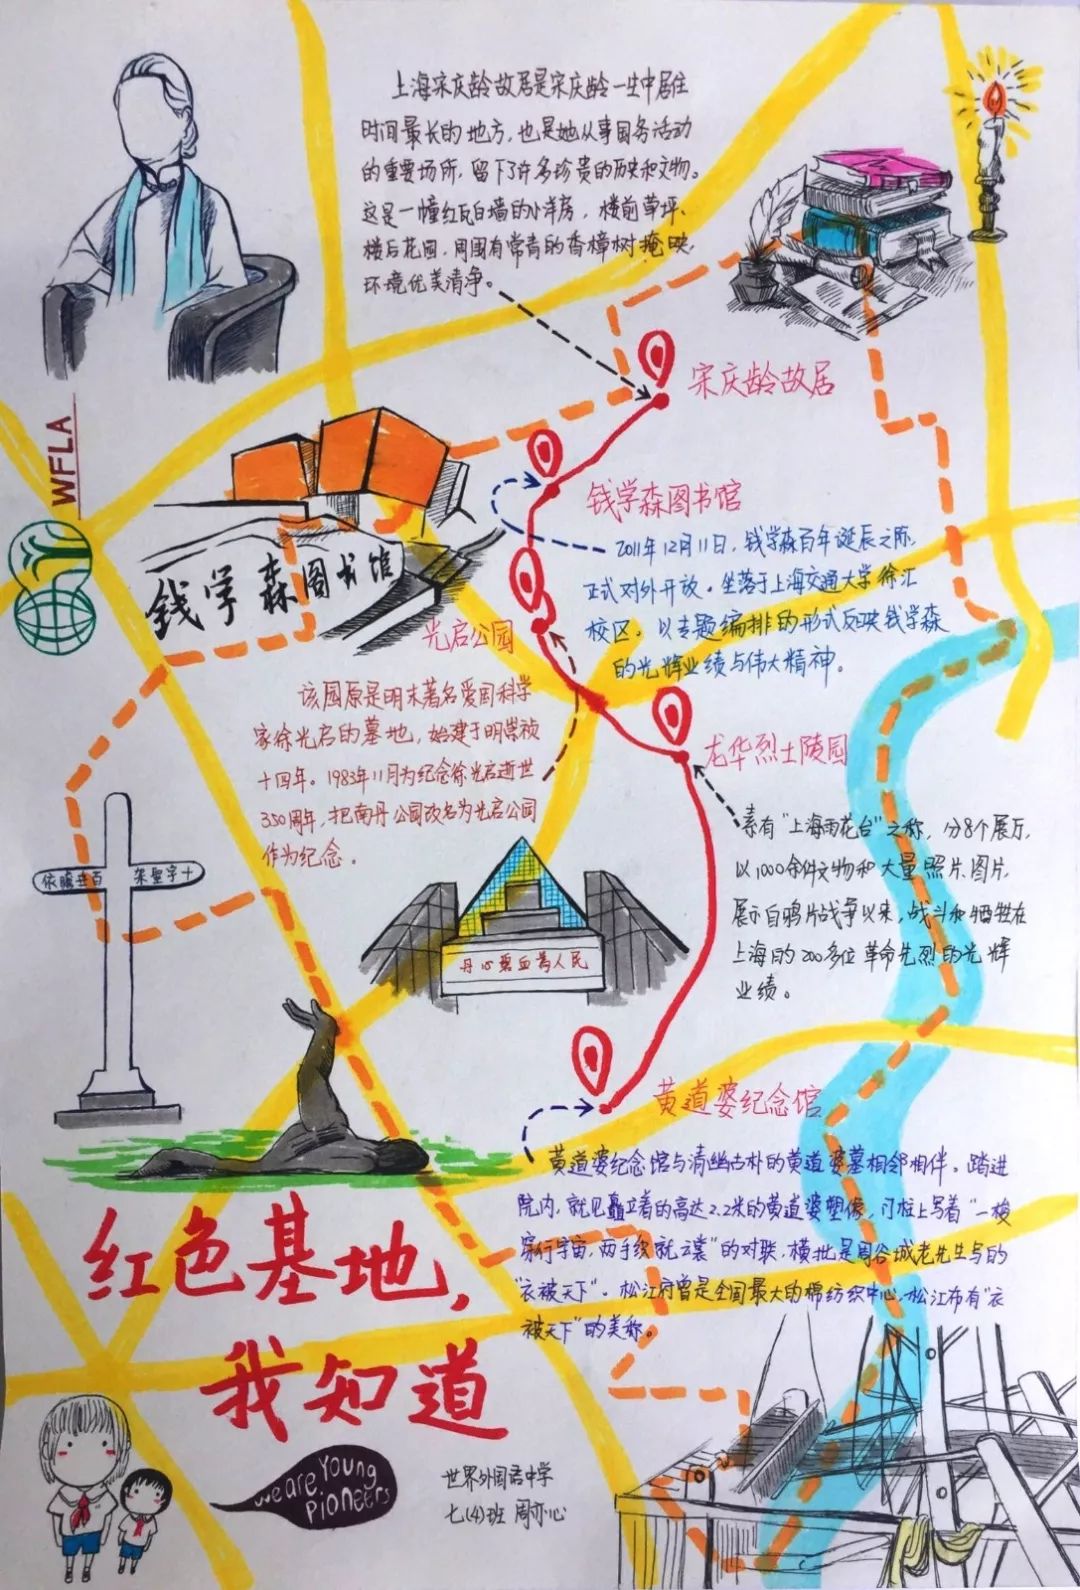 上海宋庆龄故居是宋庆龄一生中居住
时间最长的地方，也是她从事国务活动
的重要场所，留下了许多珍贵的历史和文物。
这是一幢红瓦白墙的小洋房，楼前草坪、
楼后花园，周围有常青的香樟树掩映，
环境优美清净。
宋庆龄故居
WFLA
钱学森图书馆
2011年12月11日，钱学森百年诞辰之际，
正式对外开放。坐落于上海交通大学徐汇
校区，以专题编排的形式反映钱学森
的光辉业绩与伟大精神。
钱学森图书馆
光启公园
该园原是明末著名爱国科学
家徐光启的墓地，始建于明崇祯
十四年。1983年11月为纪念徐光启逝世
350周年，把南丹公园改名为光启公园
作为纪念。
龙华烈士陵园
素有“上海雨花台”之称，分8个展厅，
以1000余件文物和大量照片、图片，
展示自鸦片战争以来，战斗和牺牲在
上海的200多位革命先烈的光辉
业绩。
丹心碧血为人民
黄道婆纪念馆
黄道婆纪念馆与清幽古朴的黄道婆墓相邻相伴。踏进
院内，就见矗立着的高达2.2米的黄道婆塑像，门柱上写着“一梭
穿行宇宙，两手织就云裳”的对联，横批是周谷城老先生写的
“衣被天下”。松江府曾是全国最大的棉纺织中心，松江布有“衣
被天下”的美称。
红色基地，
我知道
we are Young
Pioneers
世界外国语中学
七(4)班 周亦心